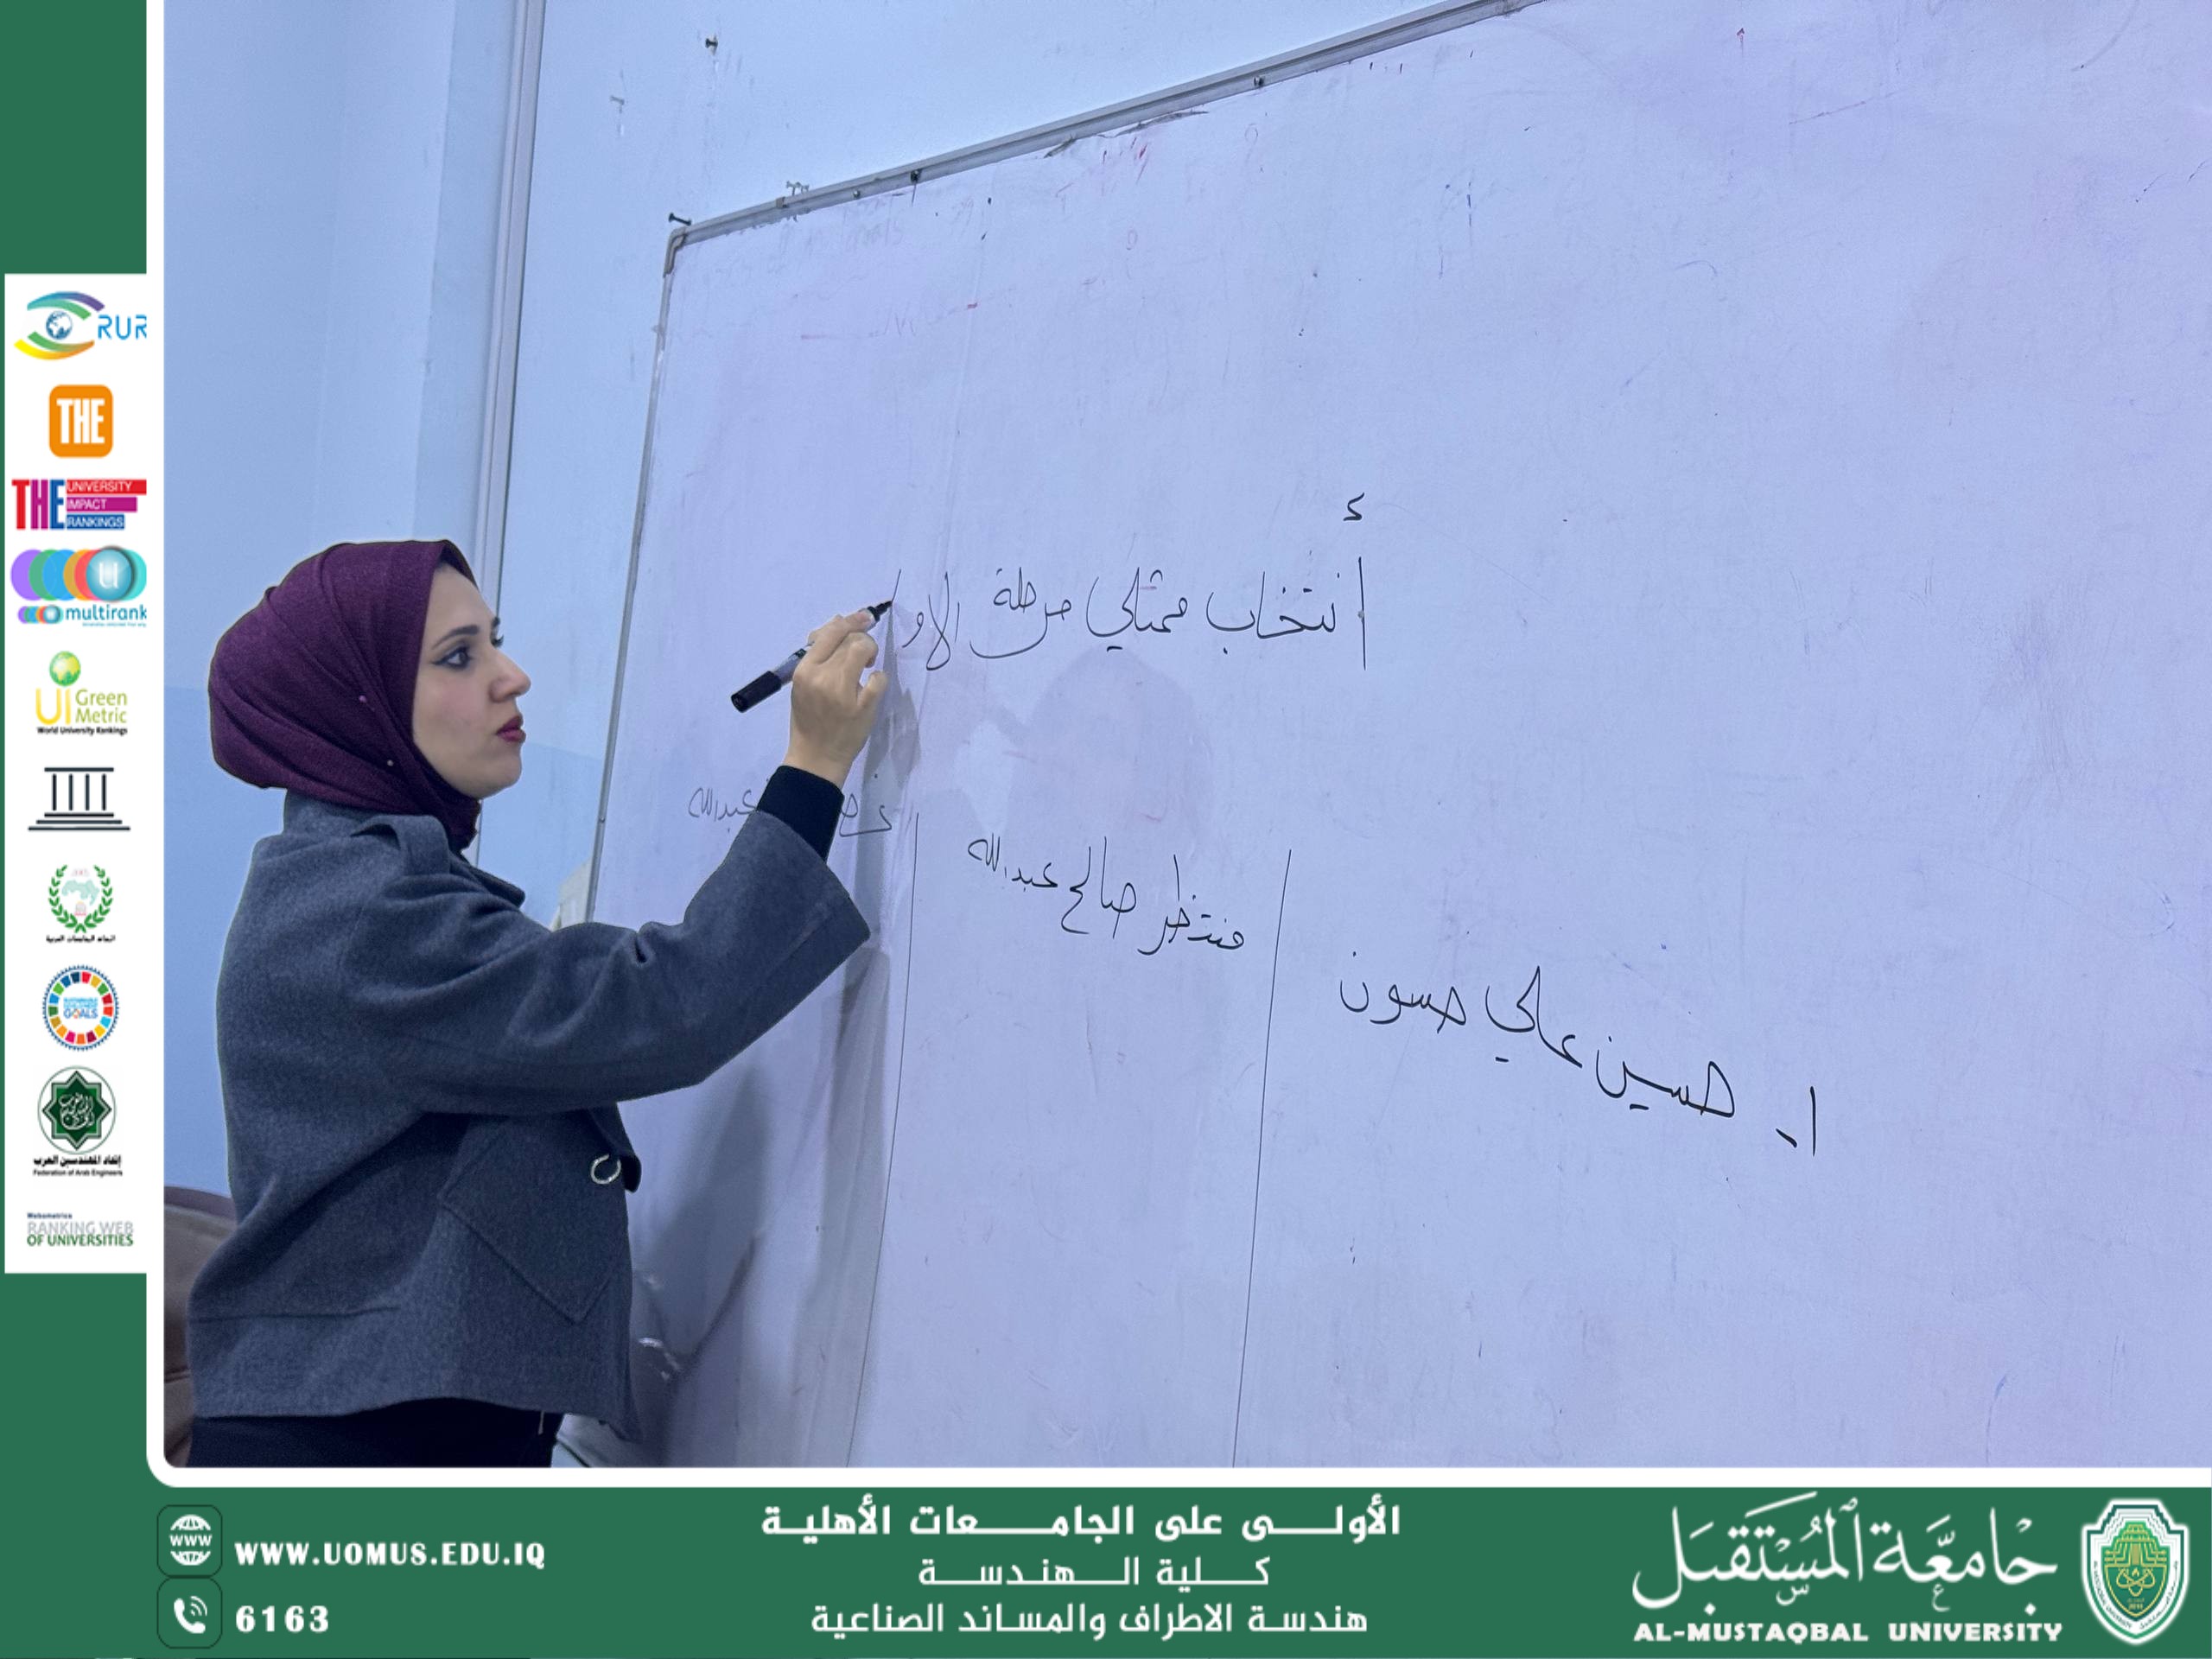 RUR
THE
THE UNIVERSITY IMPACT RANKINGS
U
multirank
UI Green Metric
World University Rankings
اتحاد الجامعات العربية
SUSTAINABLE DEVELOPMENT GOALS
إتحاد المهندسين العرب
Federation of Arab Engineers
Webometrics
RANKING WEB
OF UNIVERSITIES
أ
انتخاب ممثلي مرحلة الاو
١- حسين علي حسون
منتظر صالح عبدالله
عبدالله
الأولى على الجامعات الأهلية
كلية الهندسة
هندسة الاطراف والمساند الصناعية
WWW
WWW.UOMUS.EDU.IQ
6163
جامعة المستقبل
AL-MUSTAQBAL UNIVERSITY